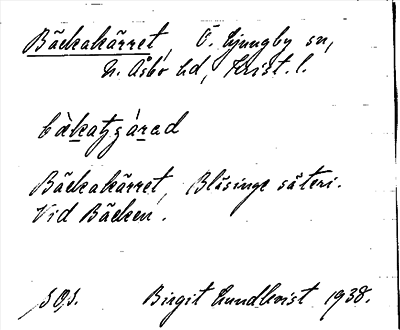 Bäckakärret, Ö. Ljungby sn,
N. Åsbo hd, Krist. l.
Bäckakärret, Blåsinge säteri.
Vid Bäcken.
Birgit Lundkvist 1938.